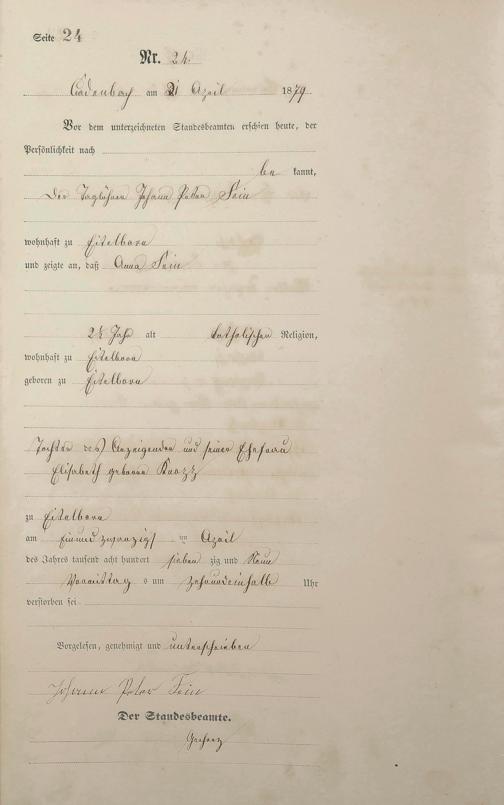 Seite 24
Nr. 24.
Cadenbach am 21 April 1879.
Vor dem unterzeichneten Standesbeamten erschien heute, der
Persönlichkeit nach
be kannt,
Der Taglöhner Johann Peter Fein
wohnhaft zu Eitelborn
und zeigte an, daß Anna Fein
2½ Jahr alt katholischer Religion,
wohnhaft zu Eitelborn
geboren zu Eitelborn
Tochter des Anzeigenden und seiner Ehefrau
Elisabeth geborene
zu Eitelborn
am einundzwanzigsten April
des Jahres tausend acht hundert sieben zig und Neun
Vormittag s um zehnundeinhalb Uhr
verstorben sei
Vorgelesen, genehmigt und unterschrieben
Johann Peter Fein
Der Standesbeamte.